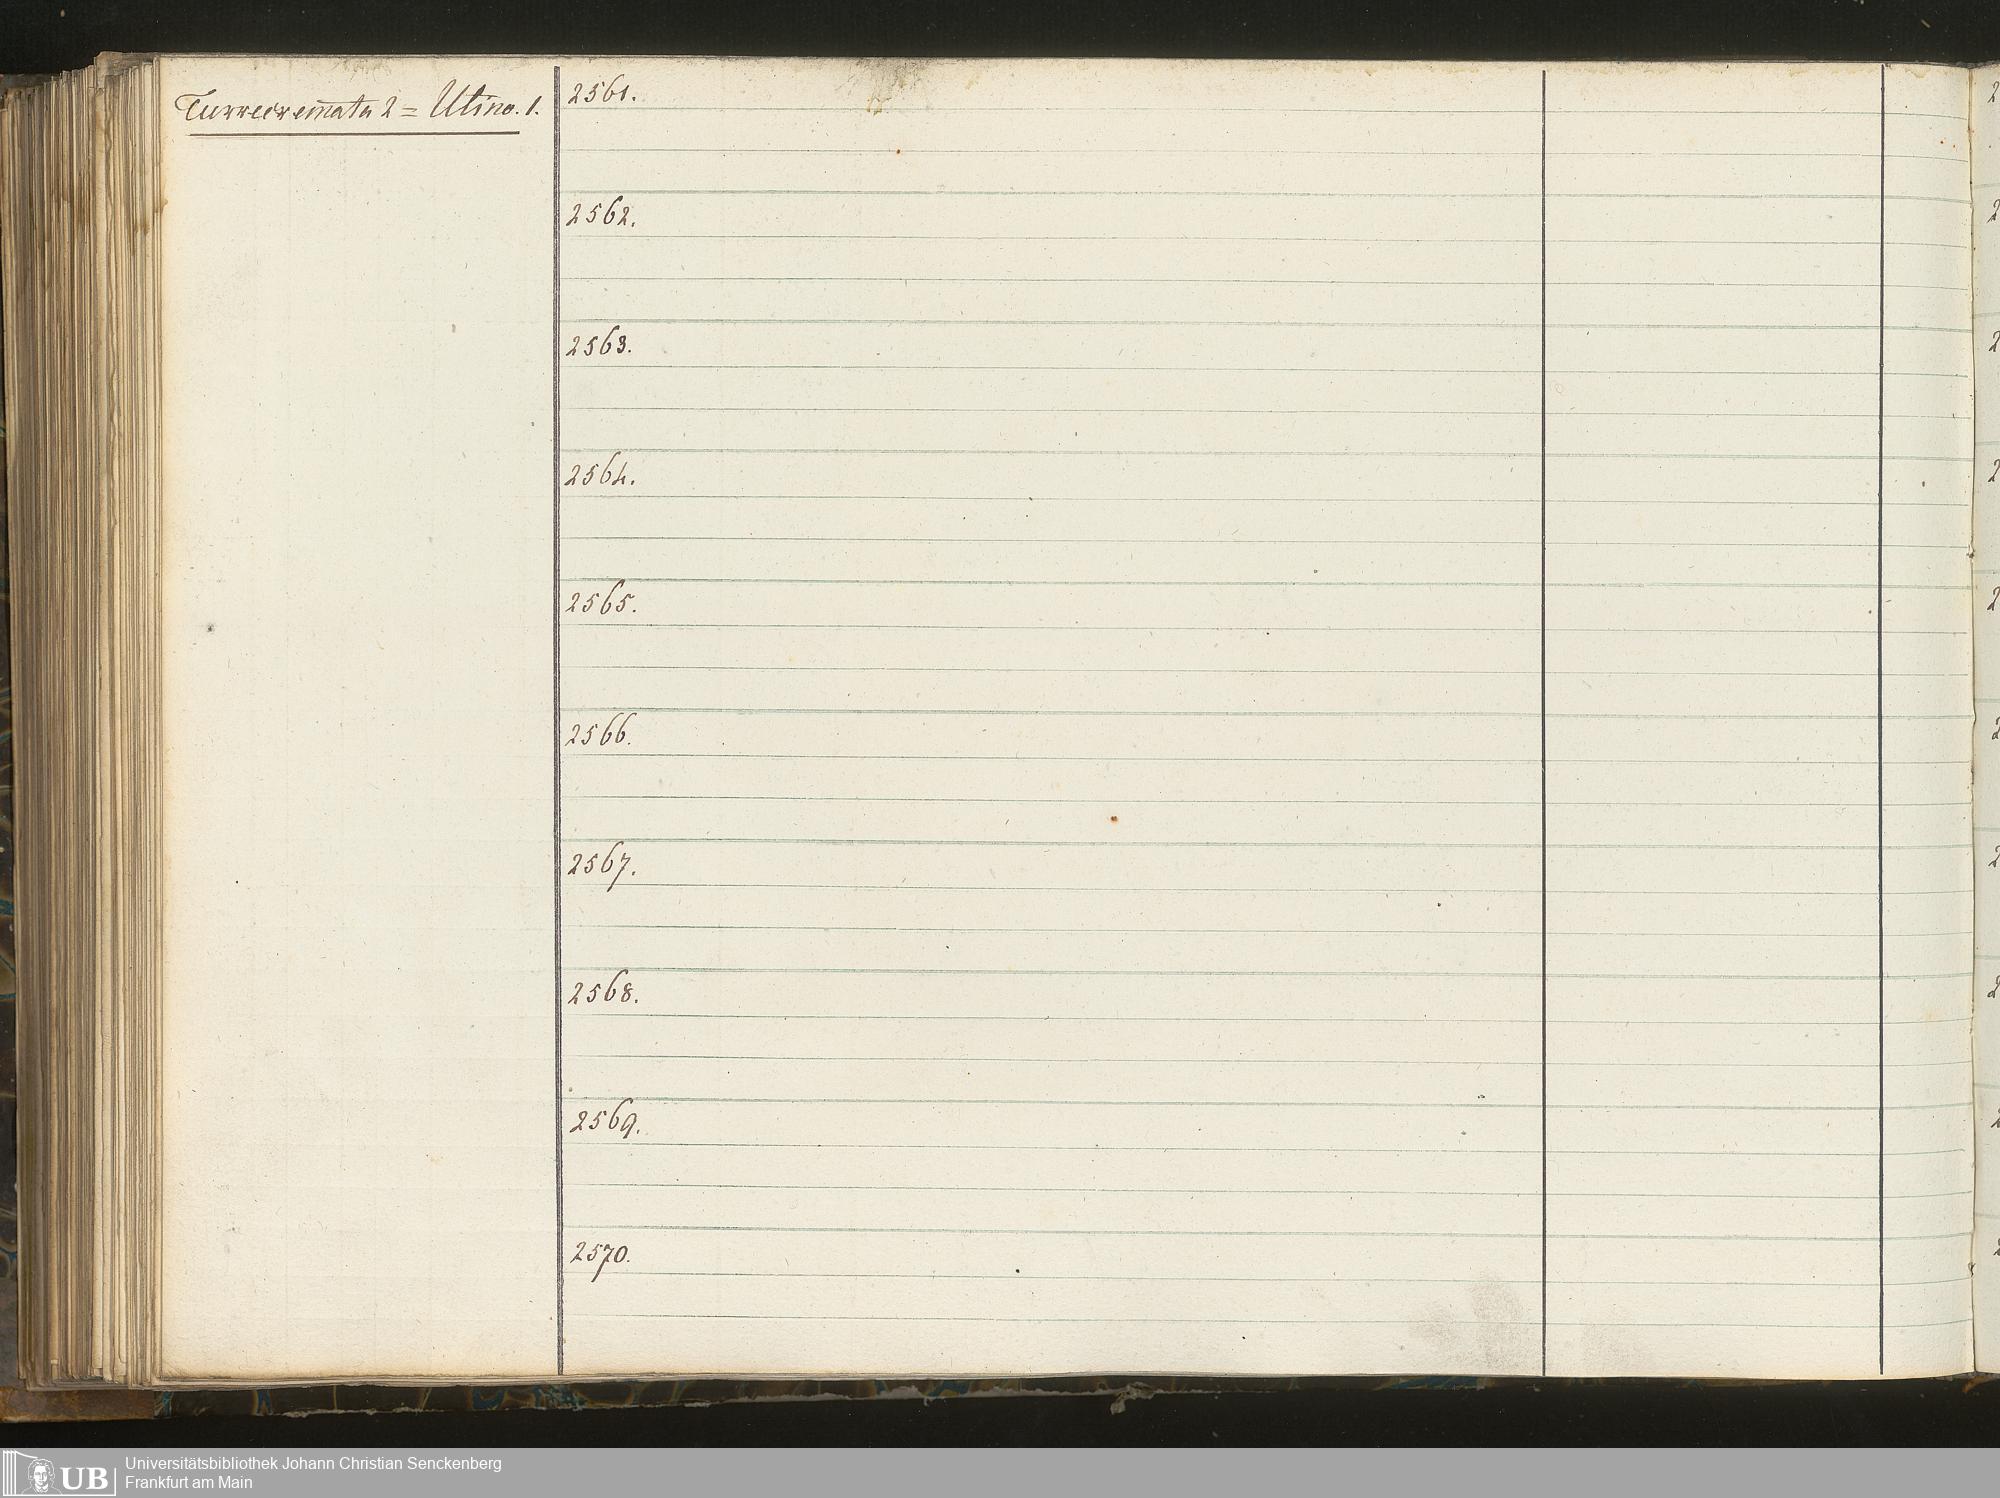 Turrecremata 2 = Utino. 1.
2561.
2562.
2563.
2564.
2565.
2566.
2567.
2568.
2569.
2570.
UB
Universitätsbibliothek Johann Christian Senckenberg
Frankfurt am Main